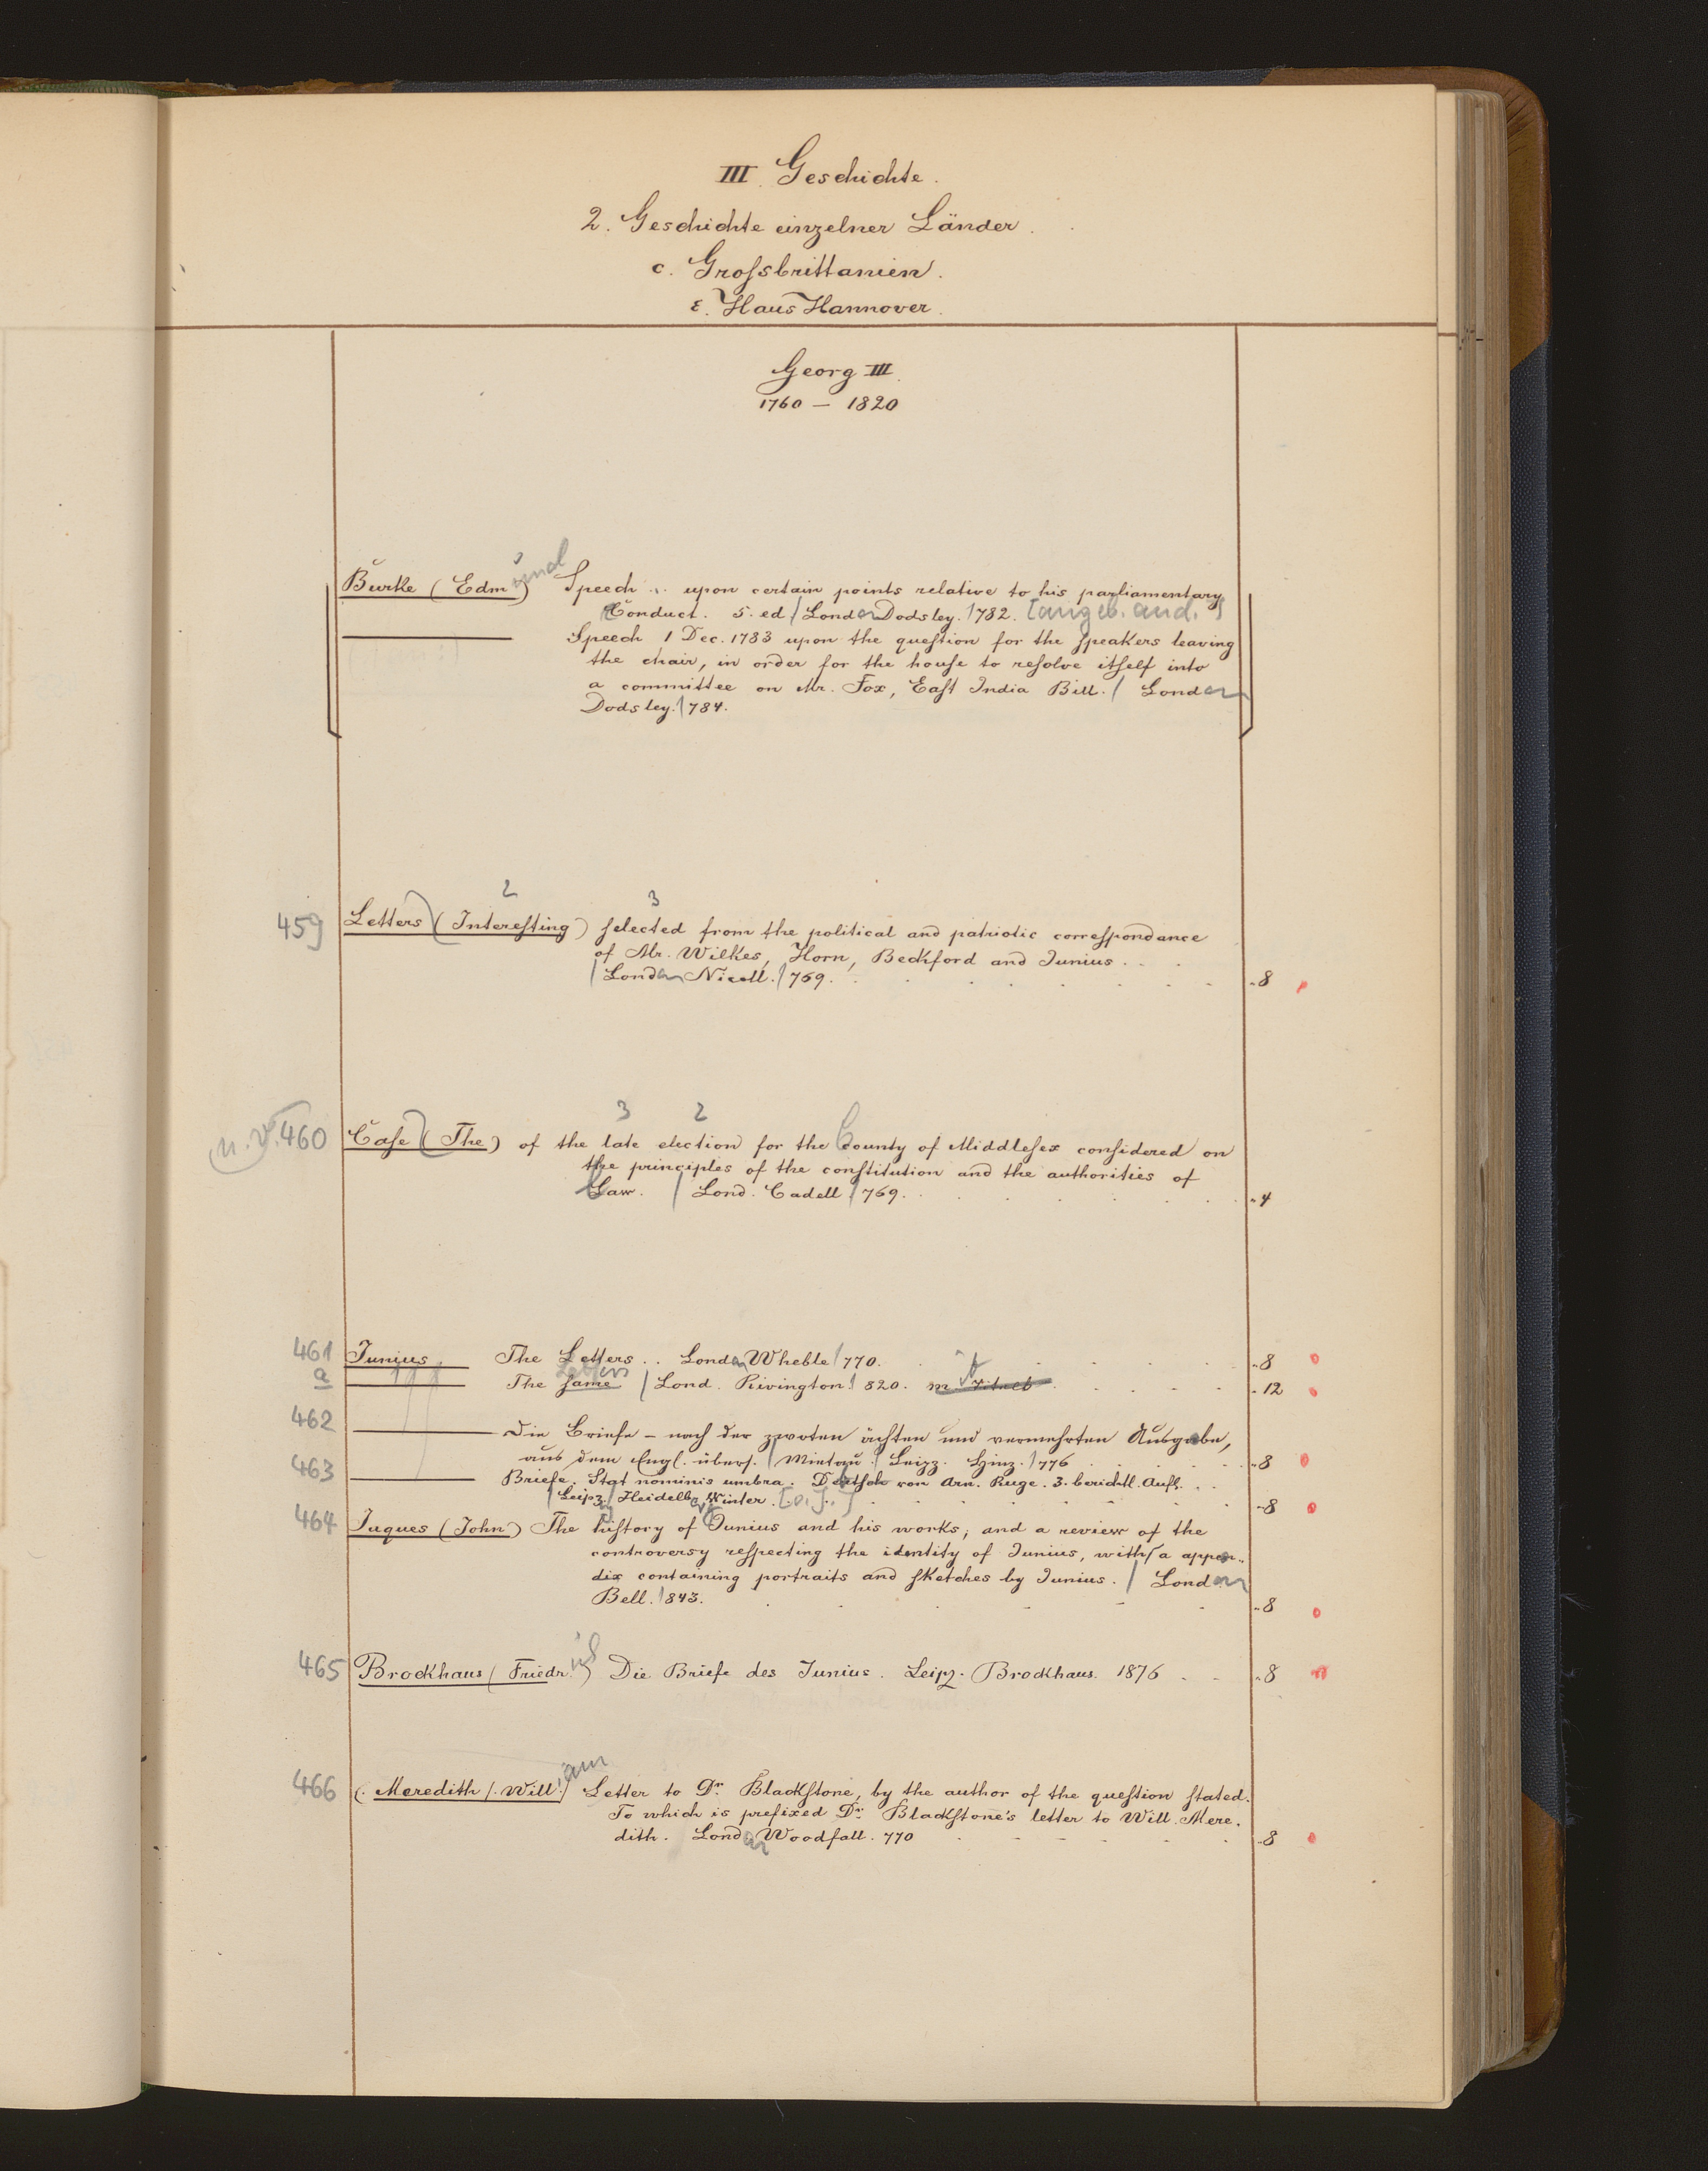 III. Geschichte.
2. Geschichte einzelner Länder.
c. Grossbrittanien.
ε. Haus Hannover.
Georg III.
1760 — 1820
Burke (Edmund) Speech ... upon certain points relative to his parliamentary
Conduct. 5. ed / London Dodsley. 1782. [angeb. and.]
Speech 1 Dec. 1783 upon the question for the speakers leaving
the chair, in order for the house to resolve itself into
a committee on Mr. Fox, East India Bill. / London
Dodsley. 1784.
2 3
459 Letters (Interesting) selected from the political and patriotic correspondance
of Mr. Wilkes, Horn, Beckford and Junius . . .
/ London Nicoll. 1769. 8
3 2
n. V. 460 Case (The) of the late election for the County of Middlesex considered on
the principles of the constitution and the authorities of
Law. / Lond. Cadell 1769. 4
461 Junius The Letters .. London Wheble 1770. 8
a The same Letters / Lond. Rivington 1820. 12
462 Die Briefe – nach der zwoten ächten und vermehrten Ausgabe,
aus dem Engl. übers. / Mietau / Leipz. Hinz. 1776 8
463 Briefe. Stat nominis umbra. Deutsch von Arn. Ruge. 3. berichtl. Aufl. . .
/ Leipzg / Heidelbg Winter. [o. J.] 8
464 Jaques (John) The history of Junius and his works; and a review of the
controversy respecting the identity of Junius, with a appen-
dix containing portraits and sketches by Junius. / London
Bell. 1843. 8
465 Brockhaus (Friedr.) Die Briefe des Junius. Leipz. Brockhaus. 1876 8
466 (. Meredith /. William) Letter to Dr. Blackstone, by the author of the question stated.
To which is prefixed Dr. Blackstone's letter to Will. Mere-
dith. London Woodfall. 770 8